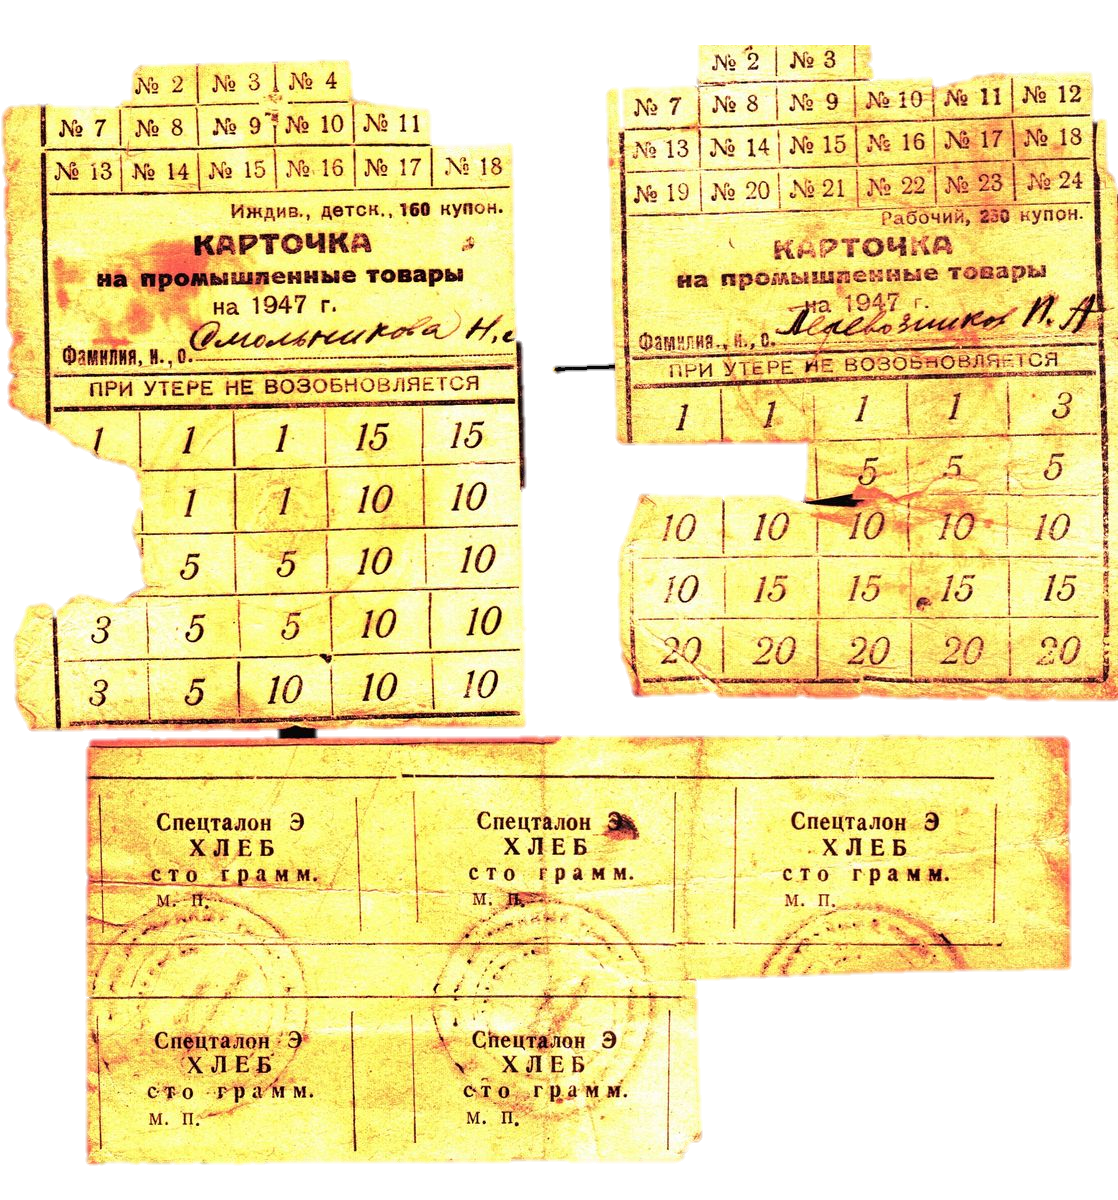 № 2 № 3 № 4
№ 7 № 8 № 9 № 10 № 11
№ 13 № 14 № 15 № 16 № 17 № 18
Иждив., детск., 160 купон.
КАРТОЧКА
на промышленные товары
на 1947 г.
Фамилия, и., о. Смольникова Н.
ПРИ УТЕРЕ НЕ ВОЗОБНОВЛЯЕТСЯ
1 1 1 15 15
1 1 10 10
5 5 10 10
3 5 5 10 10
3 5 10 10 10
№ 2 № 3
№ 7 № 8 № 9 № 10 № 11 № 12
№ 13 № 14 № 15 № 16 № 17 № 18
№ 19 № 20 № 21 № 22 № 23 № 24
Рабочий, 230 купон.
КАРТОЧКА
на промышленные товары
на 1947 г.
Фамилия., и., о. Перевозчиков П. А
ПРИ УТЕРЕ НЕ ВОЗОБНОВЛЯЕТСЯ
1 1 1 1 3
5 5 5
10 10 10 10 10
10 15 15 15 15
20 20 20 20 20
Спецталон Э
ХЛЕБ
сто грамм.
м. п.
Спецталон Э
ХЛЕБ
сто грамм.
м. п.
Спецталон Э
ХЛЕБ
сто грамм.
м. п.
Спецталон Э
ХЛЕБ
сто грамм.
м. п.
Спецталон Э
ХЛЕБ
сто грамм.
м. п.